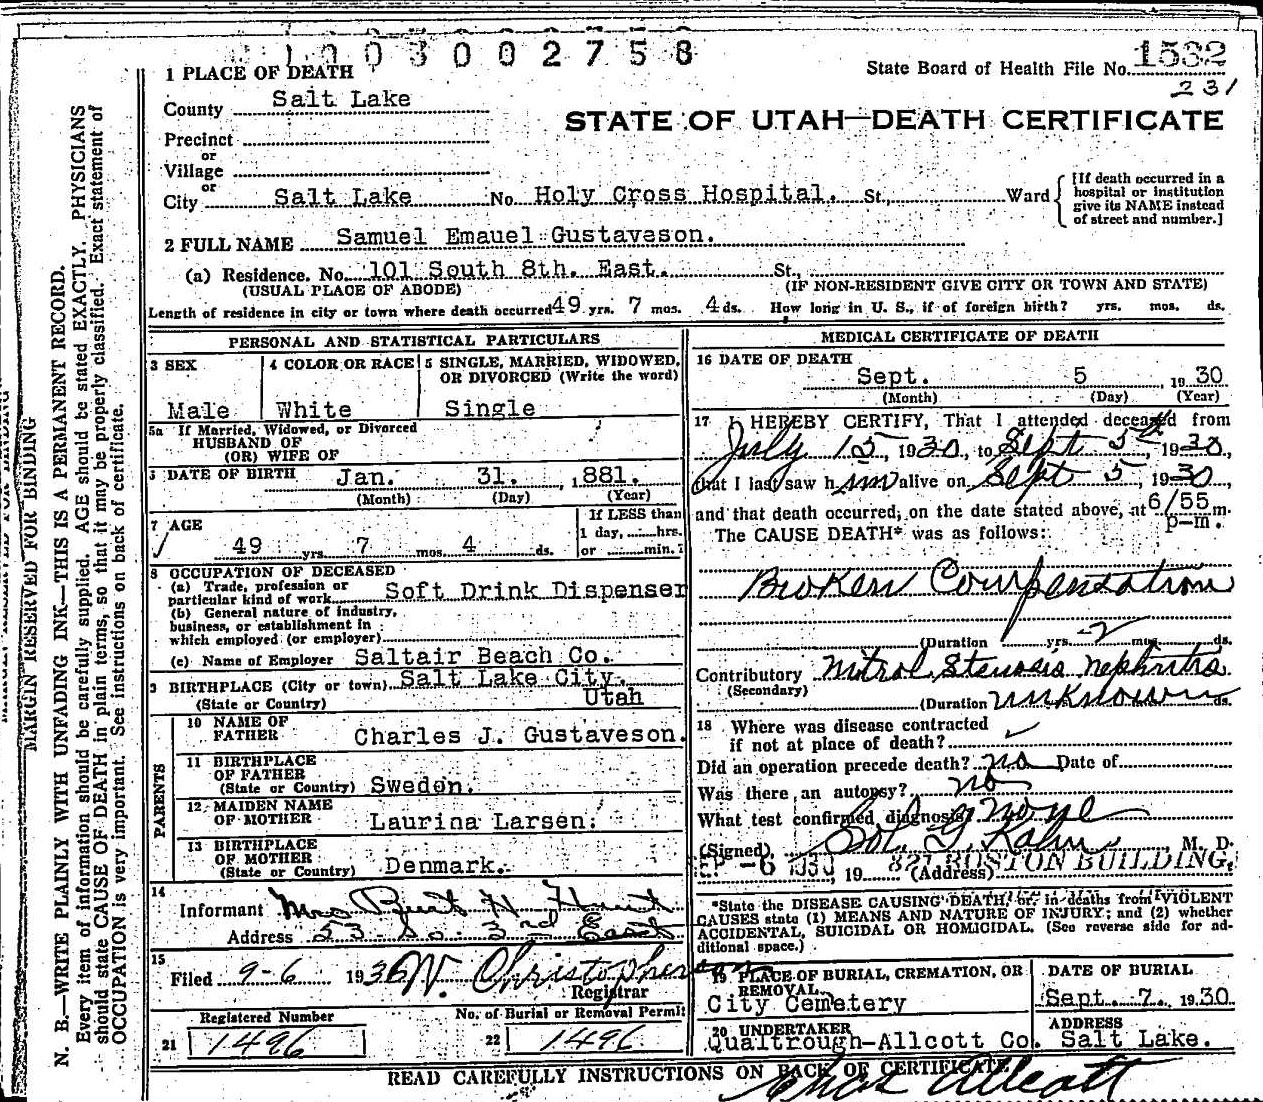 1003002758
1 PLACE OF DEATH
State Board of Health File No. 1532
231
County Salt Lake
STATE OF UTAH—DEATH CERTIFICATE
Precinct
or
Village
or
City Salt Lake No. Holy Cross Hospital. St., Ward
[If death occurred in a
hospital or institution
give its NAME instead
of street and number.]
2 FULL NAME Samuel Emauel Gustaveson.
(a) Residence. No. 101 South 8th. East. St.,
(USUAL PLACE OF ABODE) (IF NON-RESIDENT GIVE CITY OR TOWN AND STATE)
Length of residence in city or town where death occurred 49 yrs. 7 mos. 4 ds. How long in U. S., if of foreign birth? yrs. mos. ds.
PERSONAL AND STATISTICAL PARTICULARS
3 SEX
Male
4 COLOR OR RACE
White
5 SINGLE, MARRIED, WIDOWED,
OR DIVORCED (Write the word)
Single
5a If Married, Widowed, or Divorced
HUSBAND OF
(OR) WIFE OF
DATE OF BIRTH Jan. 31. 1881.
(Month) (Day) (Year)
7 AGE
49 yrs. 7 mos. 4 ds.
If LESS than
1 day, hrs.
or min.?
8 OCCUPATION OF DECEASED
(a) Trade, profession or
particular kind of work Soft Drink Dispenser
(b) General nature of industry,
business, or establishment in
which employed (or employer)
(c) Name of Employer Saltair Beach Co.
9 BIRTHPLACE (City or town) Salt Lake City.
(State or Country) Utah
PARENTS
10 NAME OF
FATHER Charles J. Gustaveson.
11 BIRTHPLACE
OF FATHER
(State or Country) Sweden.
12 MAIDEN NAME
OF MOTHER Laurina Larsen.
13 BIRTHPLACE
OF MOTHER
(State or Country) Denmark.
14
Informant Mrs Burt H Hunt
Address 53 So 3rd East
15
Filed 9-6 1930 W. Christopherson
Registrar
Registered Number No. of Burial or Removal Permit
21 1496 22 1496
MEDICAL CERTIFICATE OF DEATH
16 DATE OF DEATH
Sept. 5 1930
(Month) (Day) (Year)
17 I HEREBY CERTIFY, That I attended deceased from
July 15, 1930, to Sept 5th, 1930,
that I last saw him alive on Sept 5, 1930,
and that death occurred, on the date stated above, at 6/55 m.
p-m.
The CAUSE DEATH* was as follows:
Broken Compensation
(Duration yrs. 2 mos. ds.
Contributory Mitral Stenosis Nephritis
(Secondary)
(Duration unknown ds.
18 Where was disease contracted
if not at place of death?
Did an operation precede death? no Date of
Was there an autopsy? no
What test confirmed diagnosis? none
(Signed) Sol. G. Kahn, M. D.
SEP -6 1930, 19 (Address) 827 BOSTON BUILDING,
*State the DISEASE CAUSING DEATH, or, in deaths from VIOLENT
CAUSES state (1) MEANS AND NATURE OF INJURY; and (2) whether
ACCIDENTAL, SUICIDAL OR HOMICIDAL. (See reverse side for ad-
ditional space.)
19 PLACE OF BURIAL, CREMATION, OR
REMOVAL
City Cemetery
DATE OF BURIAL
Sept. 7. 1930
20 UNDERTAKER
Qualtrough-Allcott Co.
ADDRESS
Salt Lake.
READ CAREFULLY INSTRUCTIONS ON BACK OF CERTIFICATE
Chas Allcott
MARGIN RESERVED FOR BINDING
N. B.—WRITE PLAINLY WITH UNFADING INK—THIS IS A PERMANENT RECORD.
Every item of information should be carefully supplied. AGE should be stated EXACTLY. PHYSICIANS
should state CAUSE OF DEATH in plain terms, so that it may be properly classified. Exact statement of
OCCUPATION is very important. See instructions on back of certificate.